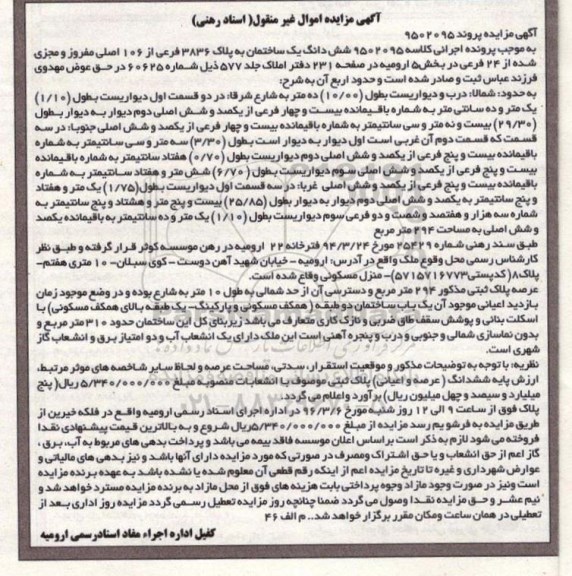 آگهی مزایده اموال غیر منقول( اسناد رهنی)
آگهی مزایده پروند ۹۵۰۲۰۹۵
به موجب پرونده اجرائی کلاسه ۹۵۰۲۰۹۵ شش دانگ یک ساختمان به پلاک ۳۸۳۶ فرعی از ۱۰۶ اصلی مفروز و مجزی
شده از ۲۴ فرعی در بخش۵ ارومیه در صفحه ۲۳۱ دفتر املاک جلد ۵۷۷ ذیل شماره ۶۰۶۲۵ در حق عوض مهدوی
فرزند عباس ثبت و صادر شده است و حدود اربع آن به شرح:
به حدود: شمالا: درب و دیواریست بطول (۱۰/۰۰) ده متر به شارع شرقا: در دو قسمت اول دیواریست بطول (۱/۱۰)
یک متر و ده سانتی متر به شماره باقیمانده بیست و چهار فرعی از یکصد و شش اصلی دوم دیوار به دیوار بطول
(۲۹/۳۰) بیست و نه متر و سی سانتیمتر به شماره باقیمانده بیست و چهار فرعی از یکصد و شش اصلی جنوبا: در سه
قسمت که قسمت دوم آن غربی است اول دیوار به دیوار است بطول (۳/۳۰) سه متر و سی سانتیمتر به شماره
باقیمانده بیست و پنج فرعی از یکصد و شش اصلی دوم دیواریست بطول (۰/۷۰) هفتاد سانتیمتر به شماره باقیمانده
بیست و پنج فرعی از یکصد و شش اصلی سوم دیواریست بطول (۶/۷۰) شش متر و هفتاد سانتیمتر به شماره
باقیمانده بیست و پنج فرعی از یکصد و شش اصلی غربا: در سه قسمت اول دیواریست بطول(۱/۷۵) یک متر و هفتاد
و پنج سانتیمتر به یکصد و شش اصلی دوم دیوار به دیوار بطول (۲۵/۸۵) بیست و پنج متر و هشتاد و پنج سانتیمتر به
شماره سه هزار و هفتصد و شصت و دو فرعی سوم دیواریست بطول (۱/۱۰) یک متر و ده سانتیمتر به باقیمانده یکصد
و شش اصلی به مساحت ۲۹۴ متر مربع
طبق سند رهنی شماره ۲۵۴۲۹ مورخ ۹۴/۳/۲۴ دفترخانه ۲۲ ارومیه در رهن موسسه کوثر قرار گرفته و طبق نظر
کارشناس رسمی محل وقوع ملک واقع در آدرس: ارومیه - خیابان شهید آهن دوست - کوی سبلان- ۱۰ متری هفتم-
پلاک۸( کدپستی۵۷۱۵۷۱۶۷۷۳)- منزل مسکونی وقاع شده است.
عرصه پلاک ثبتی مذکور ۲۹۴ متر مربع و دسترسی آن از حد شمالی به طول ۱۰ متر به شارع بوده و در وضع موجود زمان
بازدید اعیانی موجود آن یک باب ساختمان دو طبقه ( همکف مسکونی و پارکینگ- یک طبقه بالای همکف مسکونی) با
اسکلت بنائی و پوشش سقف طاق ضربی و نازک کاری متعارف می باشد زیربنای کل این ساختمان حدود ۳۱۰ متر مربع و
بدون نماسازی شمالی و جنوبی و درب و پنجره آهنی است این ملک دارای یک انشعاب آب و دو امتیاز برق و انشعاب گاز
شهری است.
نظریه: با توجه به توضیحات مذکور و موقعیت استقرار، سندی، مساحت عرصه و لحاظ سایر شاخصه های موثر مرتبط،
ارزش پایه ششدانگ ( عرصه و اعیانی) پلاک ثبتی موصوف با انشعابات منصوبه مبلغ ۵/۳۴۰/۰۰۰/۰۰۰ ریال( پنج
میلیارد و سیصد و چهل میلیون ریال) برآورد و اعلام می گردد.
پلاک فوق از ساعت ۹ الی ۱۲ روز شنبه مورخ ۹۶/۳/۶ در اداره اجرای اسناد رسمی ارومیه واقع در فلکه خیرین از
طریق مزایده به فروش می رسد مزایده از مبلغ ۵/۳۴۰/۰۰۰/۰۰۰ریال شروع و به بالاترین قیمت پیشنهادی نقدا
فروخته می شود لازم به ذکر است بر اساس اعلان موسسه فاقد بیمه می باشد و پرداخت بدهی های مربوط به آب، برق ،
گاز اعم از حق انشعاب و یا حق اشتراک و مصرف در صورتی که مورد مزایده دارای آنها باشد و نیز بدهی های مالیاتی و
عوارض شهرداری و غیره تا تاریخ مزایده اعم از اینکه رقم قطعی آن معلوم شده یا نشده باشد به عهده برنده مزایده
است و نیز در صورت وجود مازاد وجوه پرداختی بابت هزینه های فوق از محل مازاد به برنده مزایده مسترد خواهد شد و
نیم عشر و حق مزایده نقدا وصول می گردد ضمنا چنانچه روز مزایده تعطیل رسمی گردد مزایده روز اداری بعد از
تعطیلی در همان ساعت و مکان مقرر برگزار خواهد شد... م الف ۴۶
کفیل اداره اجراء مفاد اسناد رسمی ارومیه